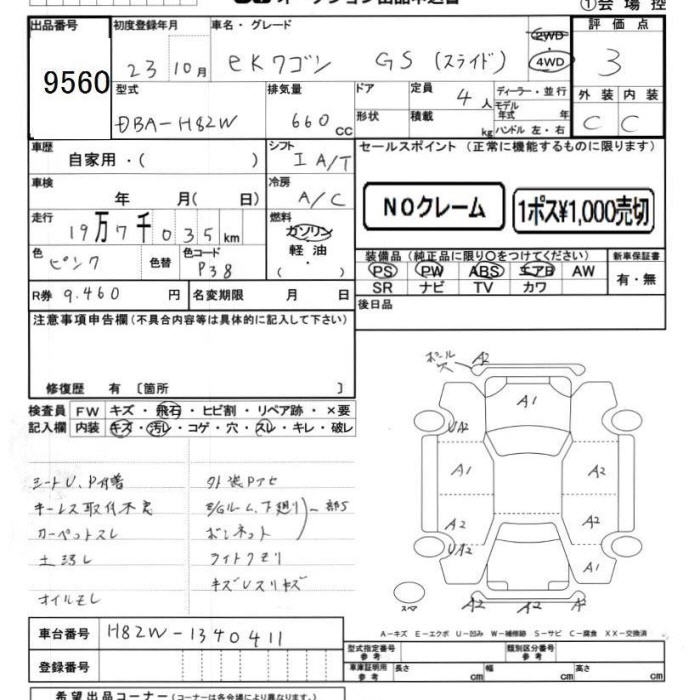 ①会場控
出品番号 初度登録年月 車名・グレード 評価点
9560 23 10月 eKワゴン GS (スライド) 2WD 4WD 3
型式 排気量 ドア 定員 4人 ディーラー・並行 外装 内装
DBA-H82W 660 CC 形状 積載 kg モデル年式 年 ハンドル 左・右 C C
車歴 自家用・( ) シフト IA/T セールスポイント (正常に機能するものに限ります)
車検 年 月( 日) 冷房 A/C NOクレーム 1ポス¥1,000売切
走行 19万7千035km 燃料 ガソリン
軽油
( )
色 ピンク 色替 色コード P38 装備品(純正品に限り○をつけてください) 新車保証書
PS PW ABS エアB AW 有・無
R券 9.460 円 名変期限 月 日 SR ナビ TV カワ
注意事項申告欄(不具合内容等は具体的に記入して下さい) 後日品
修復歴 有 〔箇所 〕
検査員 FW キズ・飛石・ヒビ割・リペア跡・×要
記入欄 内装 キズ・汚レ・コゲ・穴・スレ・キレ・破レ
ポール穴 A2
A1
UA2
A1 A2
A2 A2
UA2
A1
A2 A2 A2
スペア
シートU、P有着 外装Pアセ
キーレス取付不良 E/Gルーム、下廻リ 一部S
カーペットスレ ボンネット
土汚レ ライトクモリ
キズUスリキズ
オイルモレ
A-キズ E-エクボ U-凹み W-補修跡 S-サビ C-腐食 XX-交換済
車台番号 H82W-1340411 型式指定番号 参考 類別区分番号 参考
登録番号 車庫証明用 参考 長さ cm 幅 cm 高さ cm
希望出品コーナー(コーナーは各会場により異なります。)